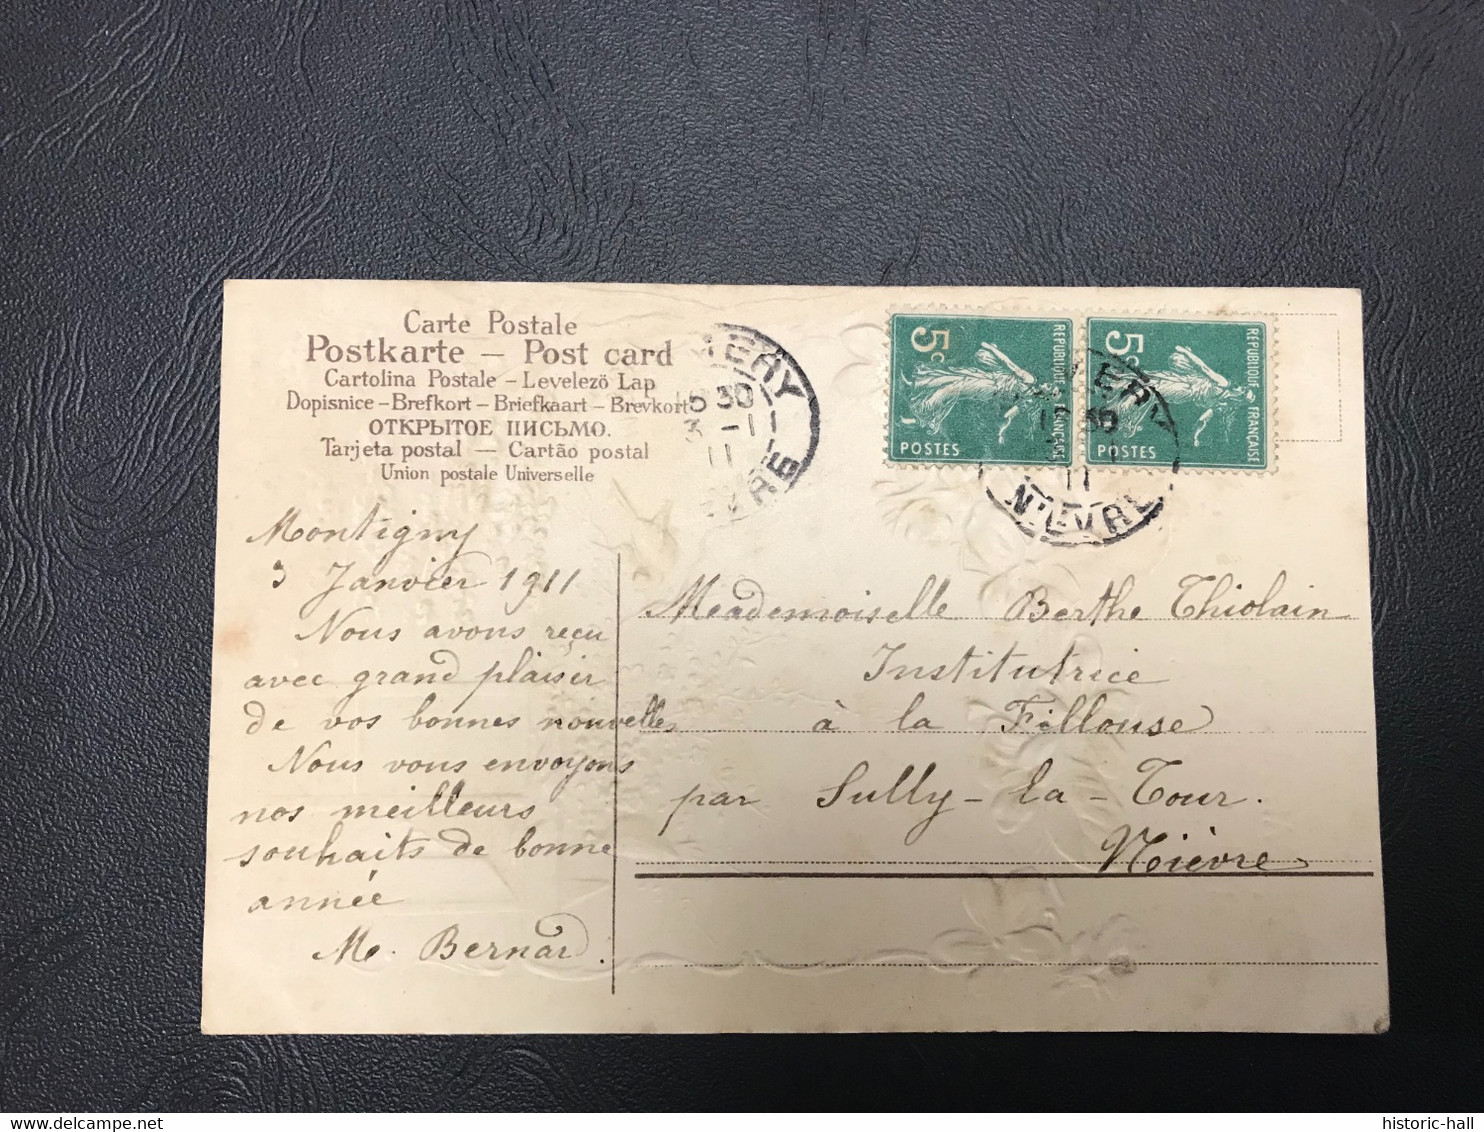 Carte Postale
Postkarte — Post card
Cartolina Postale – Levelező Lap
Dopisnice – Brefkort – Briefkaart – Brevkort
ОТКРЫТОЕ ПИСЬМО.
Tarjeta postal — Cartão postal
Union postale Universelle
15 30
3 -1
11
5c
POSTES
REPUBLIQUE FRANÇAISE
5c
POSTES
REPUBLIQUE FRANÇAISE
11
NIEVRE
Montigny
3 Janvier 1911
Nous avons reçu
avec grand plaisir
de vos bonnes nouvelles
Nous vous envoyons
nos meilleurs
souhaits de bonne
année
M. Bernard.
Meademoiselle Berthe Thiolain
Institutrice
à la Fillouse
par Sully-la-Tour.
Nièvre
historic-hall